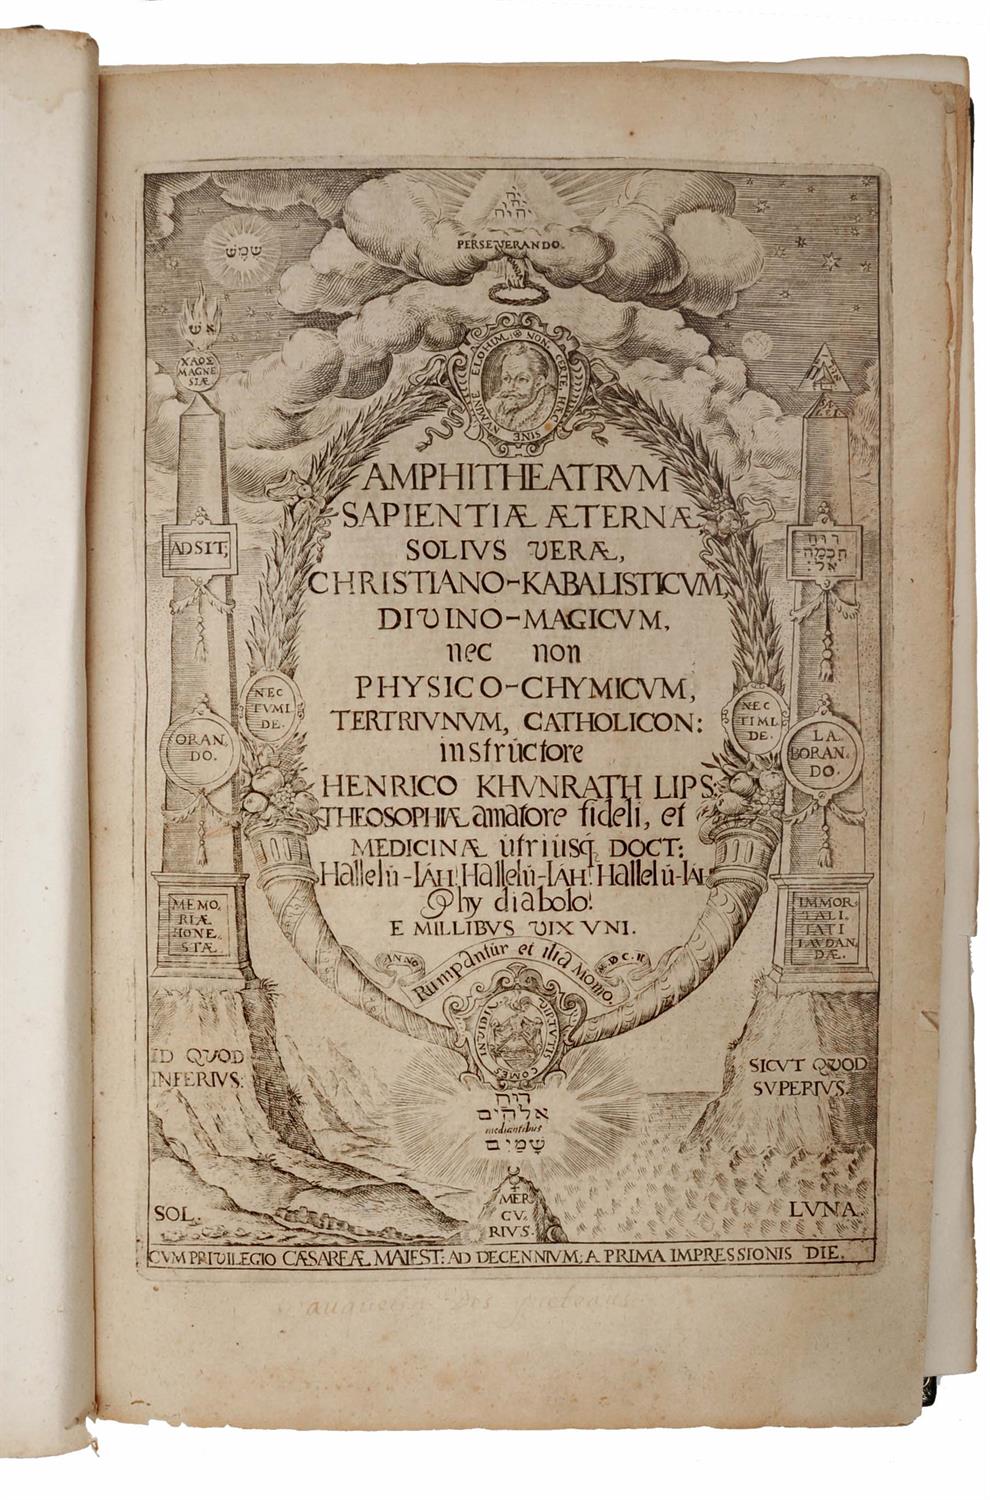 יהוה
PERSEVERANDO.
שמש
אש
ΧΑΟΣ
MAGNE
SIÆ
NUMINE ELOHIM, NON CERTE, HÆC SINE
AMPHITHEATRVM
SAPIENTIÆ ÆTERNÆ,
SOLIVS VERÆ,
CHRISTIANO-KABALISTICVM,
DIVINO-MAGICVM,
nec non
PHYSICO-CHYMICVM,
TERTRIVNVM, CATHOLICON:
instructore
HENRICO KHVNRATH LIPS:
THEOSOPHIÆ amatore fideli, et
MEDICINÆ utriusq́; DOCT:
Hallelú-IÁH! Hallelú-IÁH! Hallelú-IÁH
Phy diabolo!
E MILLIBVS VIX VNI.
ADSIT,
רוח
חכמה
אל:
NEC
TUMI,
DE.
NEC
TIMI,
DE.
ORAN,
DO.
LA,
BORAN,
DO.
MEMO,
RIÆ
HONE
STÆ.
IMMOR,
TALI,
TATI
LAVDAN,
DÆ.
ANNO
M.DC.II
Rumpantúr et ilia Momo.
VIRTUTIS COMES INVIDIA
ID QVOD
INFERIVS:
SICVT QVOD
SVPERIVS.
רוח
אלהים
mediantibus
שמים
☿
MER
CV,
RIVS.
SOL.
LVNA.
CVM PRIVILEGIO CÆSAREÆ MAIEST: AD DECENNIVM; A PRIMA IMPRESSIONIS DIE.